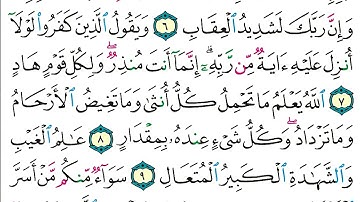 وَإِنَّ رَبَّكَ لَشَدِيدُ ٱلْعِقَابِ ٦ وَيَقُولُ ٱلَّذِينَ كَفَرُوا۟ لَوْلَآ
أُنزِلَ عَلَيْهِ ءَايَةٌ مِّن رَّبِّهِۦٓ ۗ إِنَّمَآ أَنتَ مُنذِرٌ ۖ وَلِكُلِّ قَوْمٍ هَادٍ
٧ ٱللَّهُ يَعْلَمُ مَا تَحْمِلُ كُلُّ أُنثَىٰ وَمَا تَغِيضُ ٱلْأَرْحَامُ
وَمَا تَزْدَادُ ۖ وَكُلُّ شَىْءٍ عِندَهُۥ بِمِقْدَارٍ ٨ عَٰلِمُ ٱلْغَيْبِ
وَٱلشَّهَٰدَةِ ٱلْكَبِيرُ ٱلْمُتَعَالِ ٩ سَوَآءٌ مِّنكُم مَّنْ أَسَرَّ